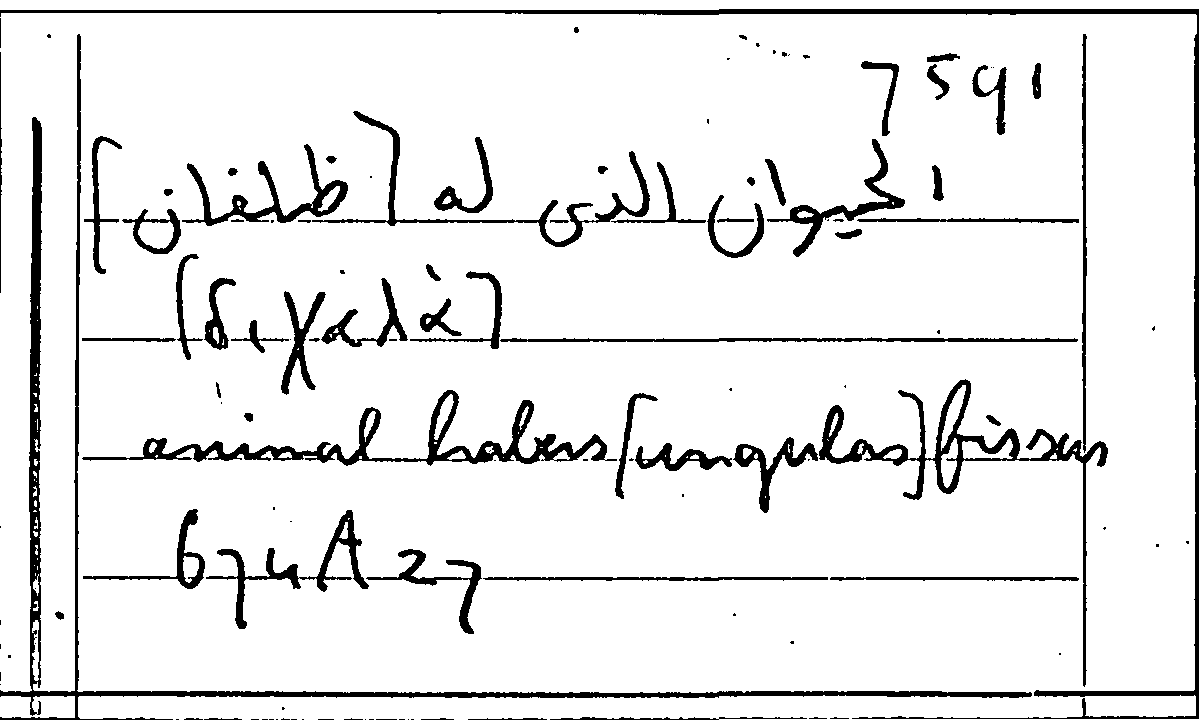 7591
الحيوان الذى له [ظلفان]
[διχαλὰ]
animal habens [ungulas] fissas
674A27